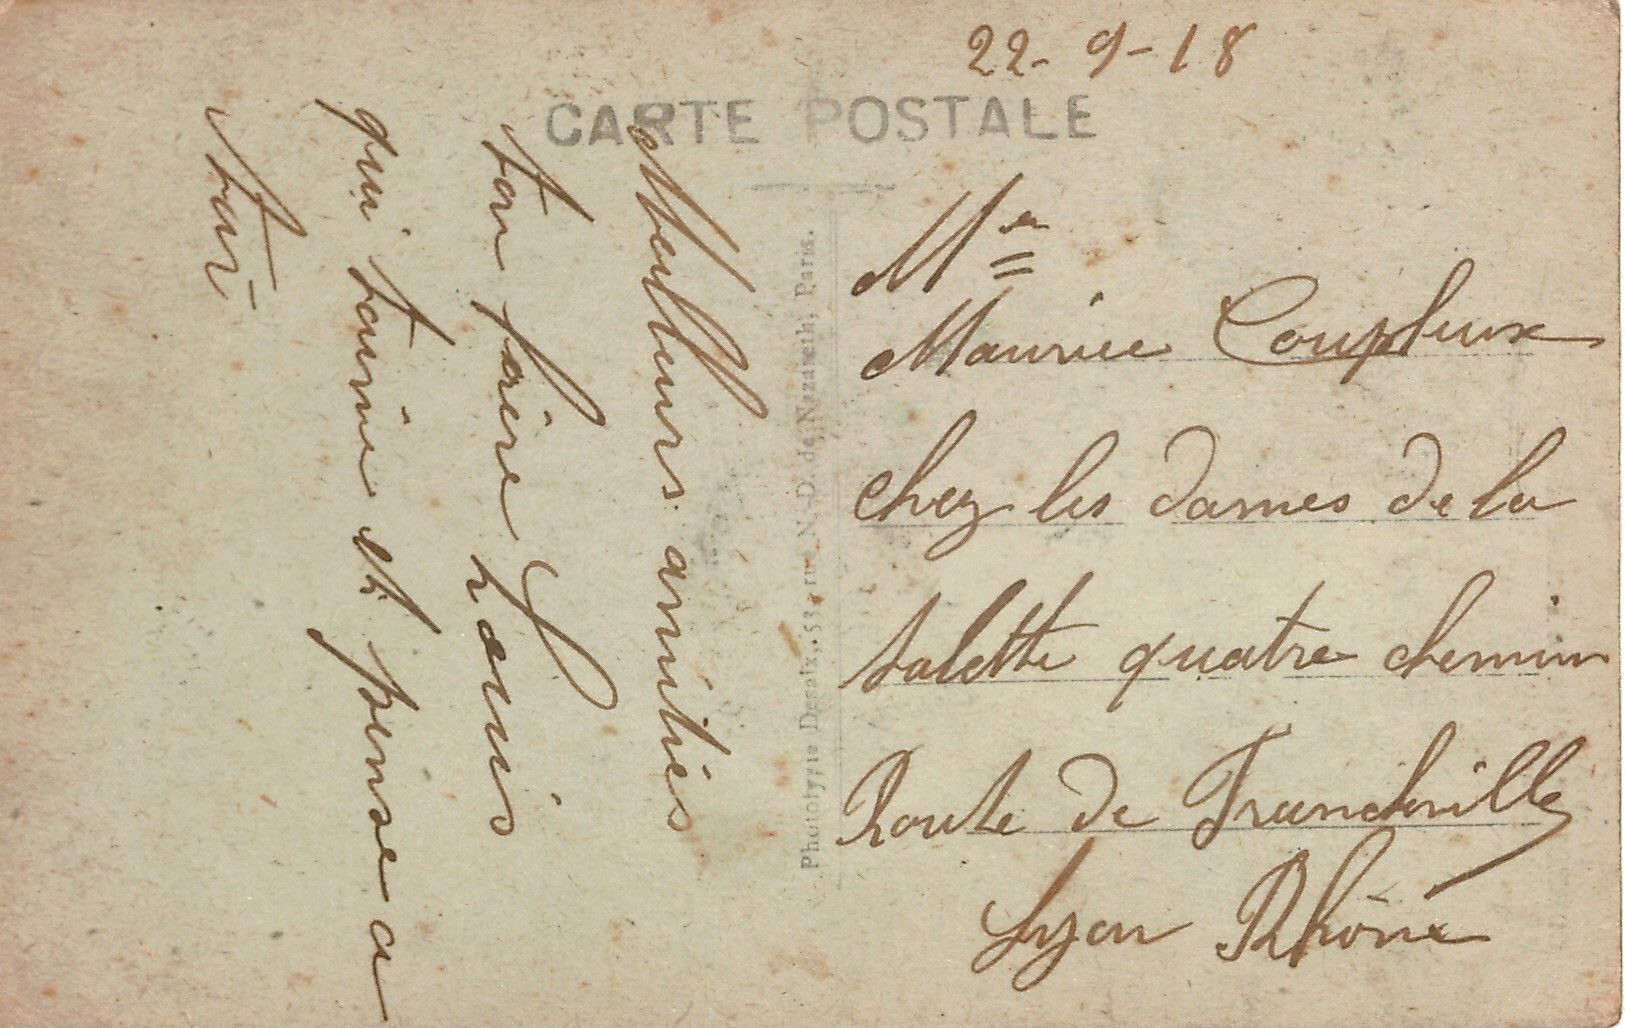 22-9-18
CARTE POSTALE
Meilleurs amitiés
ton frère Louis
qui t'aime et pense a
toi
Phototypie Desaix, 53, rue N.-D. de Nazareth, Paris.
Mr
Maurice Coupleux
chez les dames de la
salette quatre chemin
Route de Francheville
Lyon Rhône